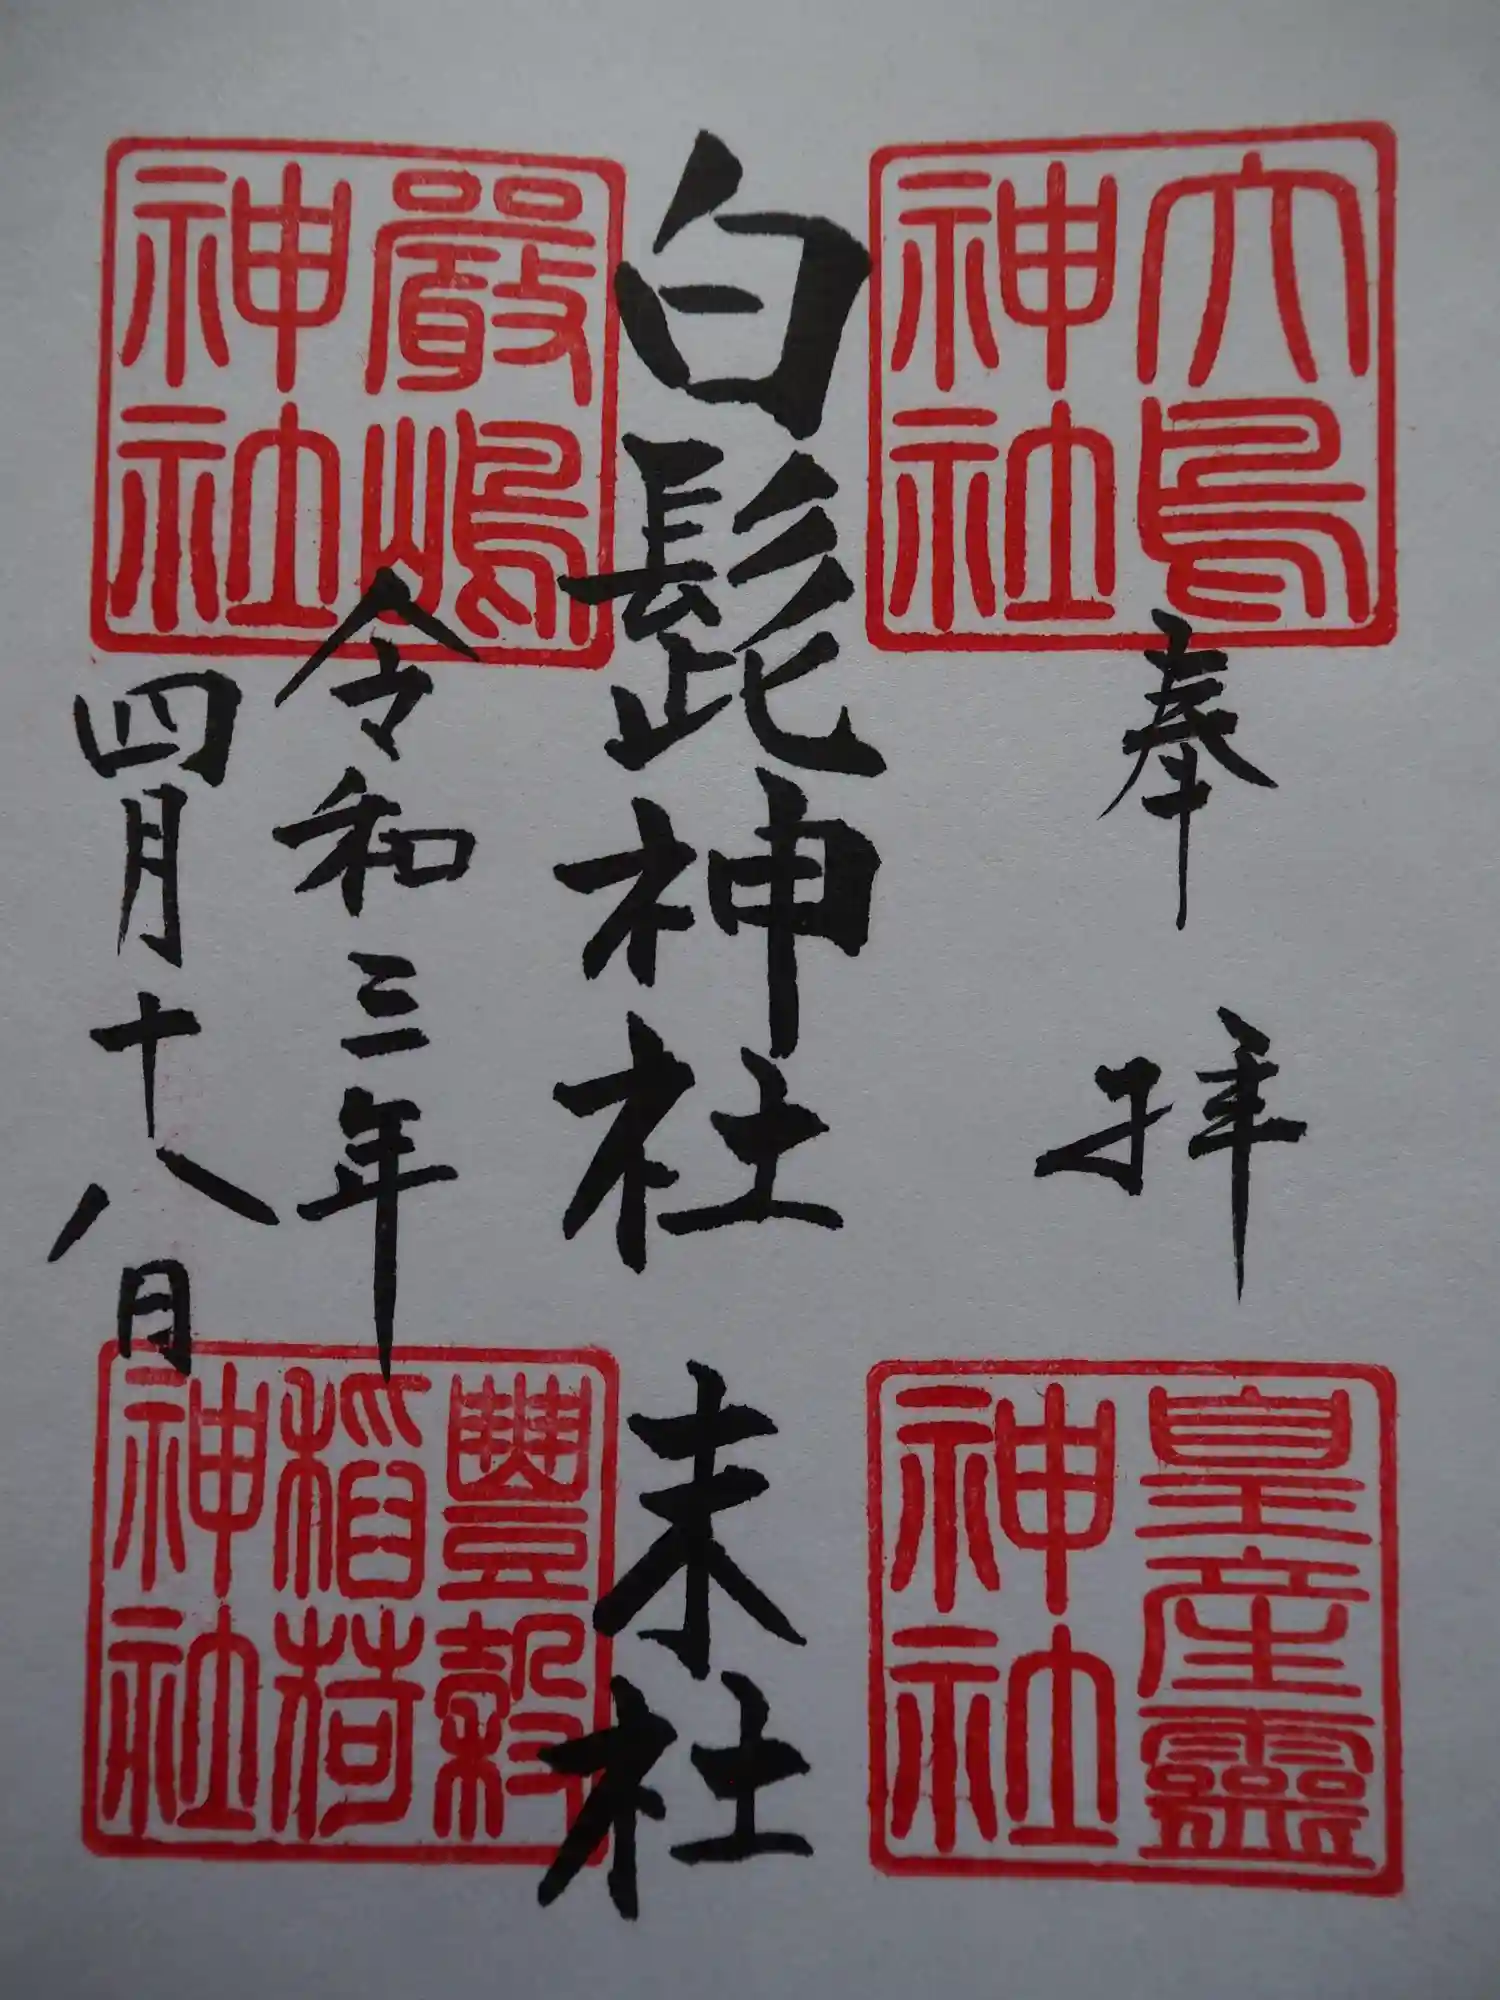 大鳥神社
奉拝
皇産靈神社
白髭神社 末社
嚴嶋神社
令和三年
四月十八日
豐穀稲荷神社